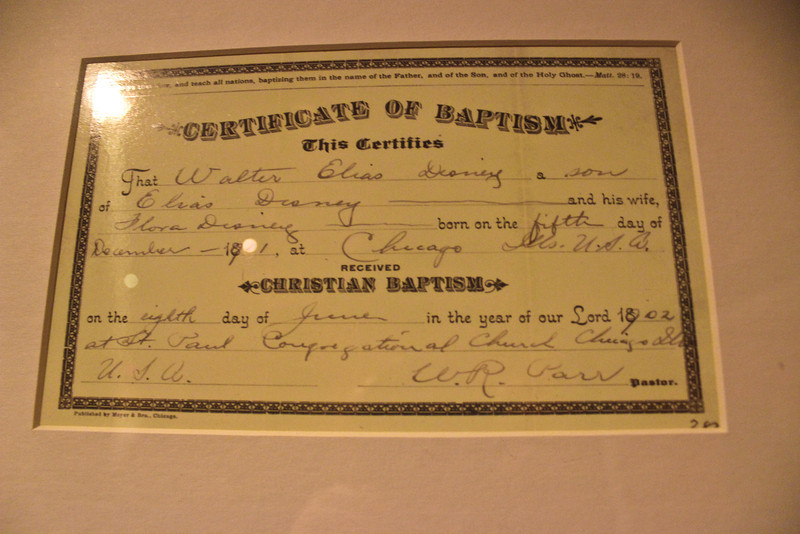 and teach all nations, baptizing them in the name of the Father, and of the Son, and of the Holy Ghost.—Matt. 28: 19.
CERTIFICATE OF BAPTISM
This Certifies
That Walter Elias Disney a son
of Elias Disney and his wife,
Flora Disney born on the fifth day of
December - 1901, at Chicago Ills. U.S.A.
RECEIVED
CHRISTIAN BAPTISM
on the eighth day of June in the year of our Lord 1902
at St. Paul Congregational Church Chicago Ills
U. S. A. W. R. Parr Pastor.
Published by Meyer & Bro., Chicago.